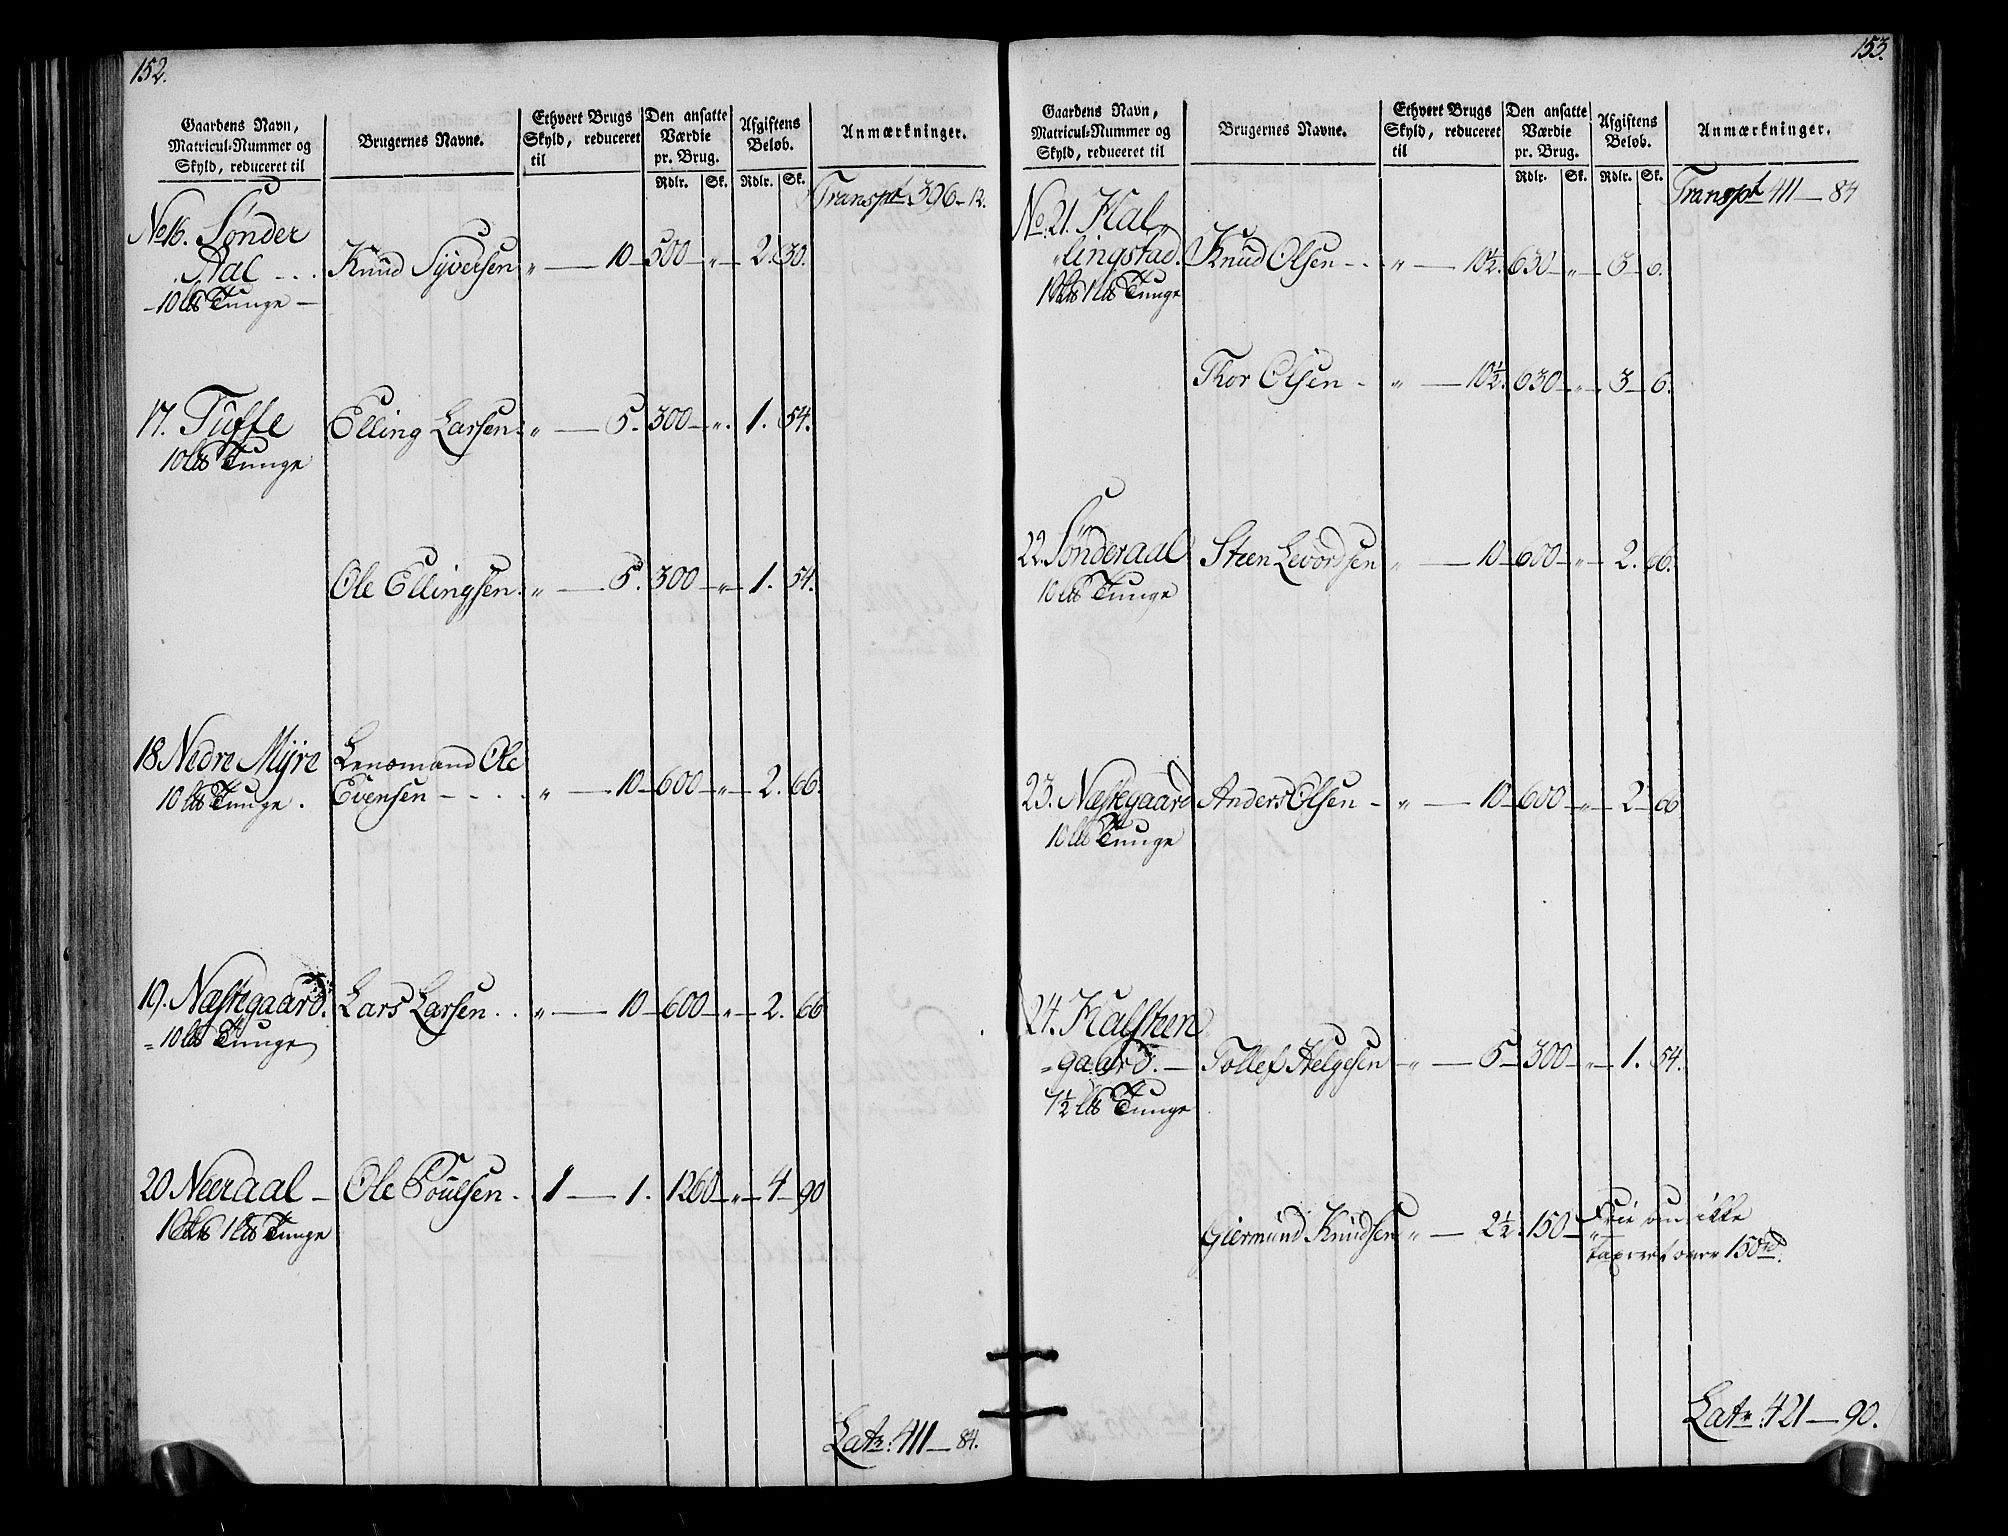 152.
Gaardens Navn, Matricul-Nummer og Skyld, reduceret til | Brugernes Navne. | Ethvert Brugs Skyld, reduceret til | Den ansatte Værdie pr. Brug. | Afgiftens Beløb. | Anmærkninger.
Rdlr. Sk. Rdlr. Sk.
Transpt 396 - 12.
No 16. Sønder
Aal - - . Knud Syversen „ — 10 — 500 — „ — 2. 30.
10 Tunge
17. Tuffe Elling Larsen „ — 5. 300 — „ . 1. 54.
10 Tunge
Ole Ellingsen „ — 5. 300 — „ — 1. 54.
18 Nedre Myre Lensmand Ole
10 Tunge. Evensen - - - . „ — 10 — 600 — „ — 2. 66.
19. Næstegaard. Lars Larsen . . „ — 10 — 600 — „ — 2. 66
10 Tunge
20 Neeraal — Ole Poulsen . 1 — 1. 1260 — „ — 4 — 90
1 1 Tunge
Latr: 411 — 84.
153.
Gaardens Navn, Matricul-Nummer og Skyld, reduceret til | Brugernes Navne. | Ethvert Brugs Skyld, reduceret til | Den ansatte Værdie pr. Brug. | Afgiftens Beløb. | Anmærkninger.
Rdlr. Sk. Rdlr. Sk.
Transpt 411 — 84
No. 21. Hal„
„lingstad. Knud Olsen - . „ — 10½. 630 — „ — 3 — 6.
1 1 Tunge
Thor Olsen - „ — 10½. 630 — „ — 3 — 6.
22. Sønderaal Steen Levordsen „ — 10 — 600 — „ — 2. 66.
10 Tunge
23. Næstegaard Anders Olsen - „ — 10 — 600 — „ — 2 — 66
10 Tunge
24. Halsteen
„gaard. — Tollef Helgesen „ — 5 — 300 — „ — 1. 54.
7½ Tunge
Giermund Knudsen „ — 2½. 150 — „ Frie om ikke
taxeret over 150 rd.
Latr: 421 — 90.